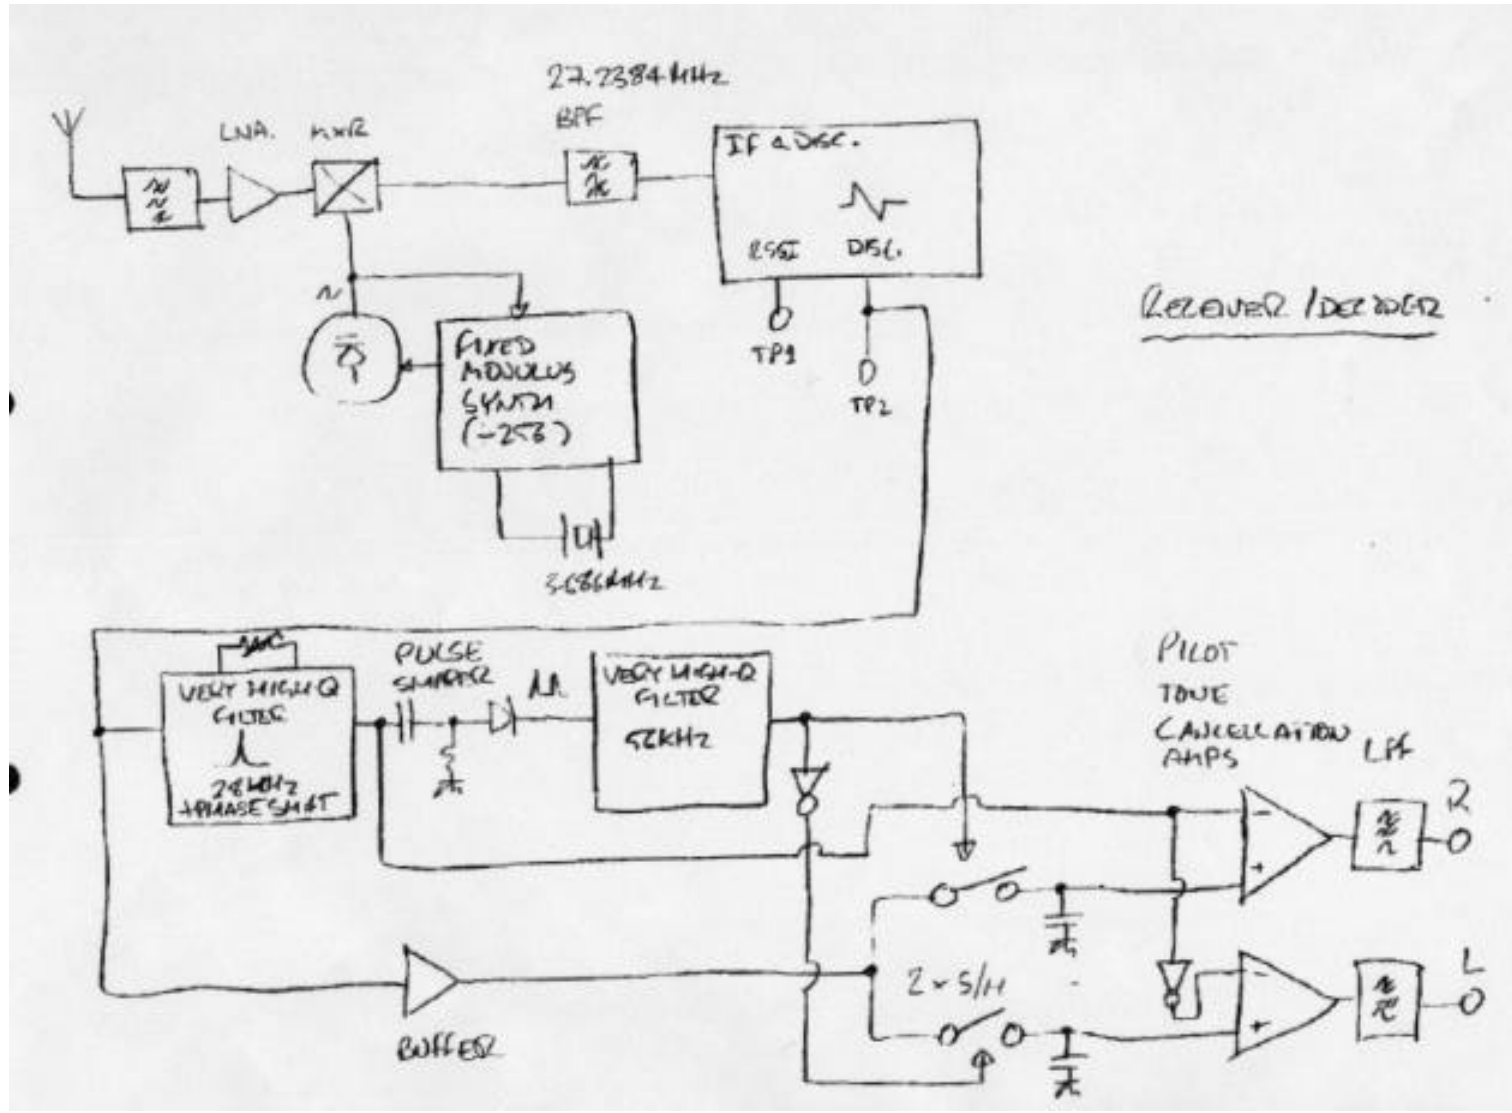 27.2384MHz
BPF
LNA.
MXR
IF & DISC.
RSSI
DISC.
TP1
TP2
RECEIVER / DECODER
FIXED
MODULUS
SYNTH
(-256)
3.686MHz
PULSE
VERY HIGH-Q
FILTER
28KHz
+PHASE SHIFT
VERY HIGH-Q
FILTER
56KHz
PILOT
TONE
CANCELLATION
AMPS
LPF
R
-
+
2 x S/H
L
-
+
BUFFER